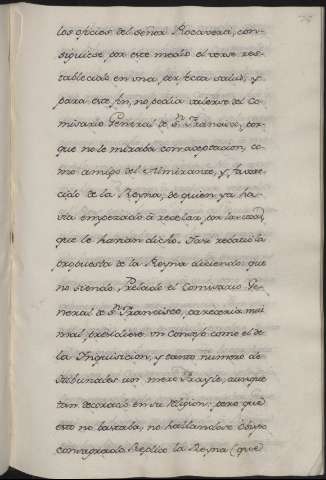 los oficios del señor Rocaverti, con-
siguiese por este medio el verse res-
tablecido en una perfecta salud, y
para este fin, no podia valerse del Co-
misario General de Sn. Francisco, por-
que no le miraba con aceptacion, co-
mo amigo del Almirante, y favore-
cido de la Reyna, de quien ya ha-
via empezado à recelar, por las cosas
que le havian dicho. Assi rebatiò la
propuesta de la Reyna diciendo que
no siendo Prelado el Comisario Ge-
neral de Sn. Francisco, pareceria mui
mal, presidiese un Consejo como el de
la Inquisicion, y tanto numero de
Tribunales un mero Frayle, aunque
tan decorado en su religion: pero que
esto no bastaba, no hallandose Obispo
consagrado. Replicò la Reyna (que